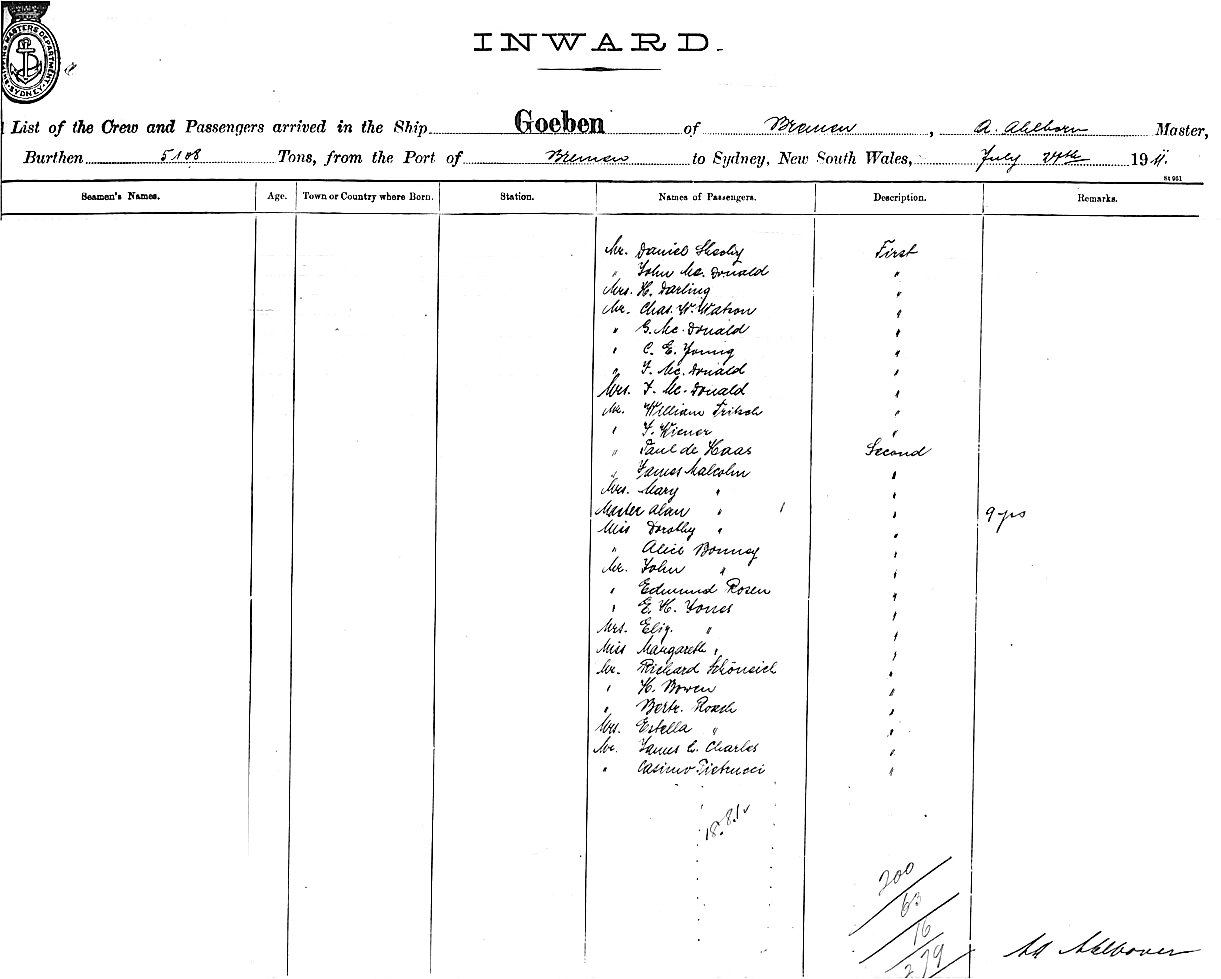 SHIPPING MASTERS DEPARTMENT SYDNEY
INWARD.
List of the Crew and Passengers arrived in the Ship Goeben of Bremen, A. Ahlborn Master,
Burthen 5108 Tons, from the Port of Bremen to Sydney, New South Wales, July 24th 1911.
St 961
Seamen's Names. Age. Town or Country where Born. Station. Names of Passengers. Description. Remarks.
Mr. Daniel Sheehy First
" John Mc. Donald "
Mrs. H. Darling "
Mr. Chas. W. Watson "
" G. Mc. Donald "
" C. E. Young "
" F. Mc. Donald "
Mrs. F. Mc. Donald "
Mr. William Fritsch "
" F. Wiener "
" Paul de Haas Second
" James Malcolm "
Mrs. Mary " "
Master Alan " 1 " 9 yrs
Miss Dorothy " "
" Alice Bonney "
Mr. John " "
" Edmund Rosen "
" E. H. Jones "
Mrs. Eliz. " "
Miss Margareth " "
Mr. Richard Schöneich "
" H. Bowen "
" Bertr. Roach "
Mrs. Estella " "
Mr. James C. Charles "
" Casimo Pietrucci "
200
63
16
279